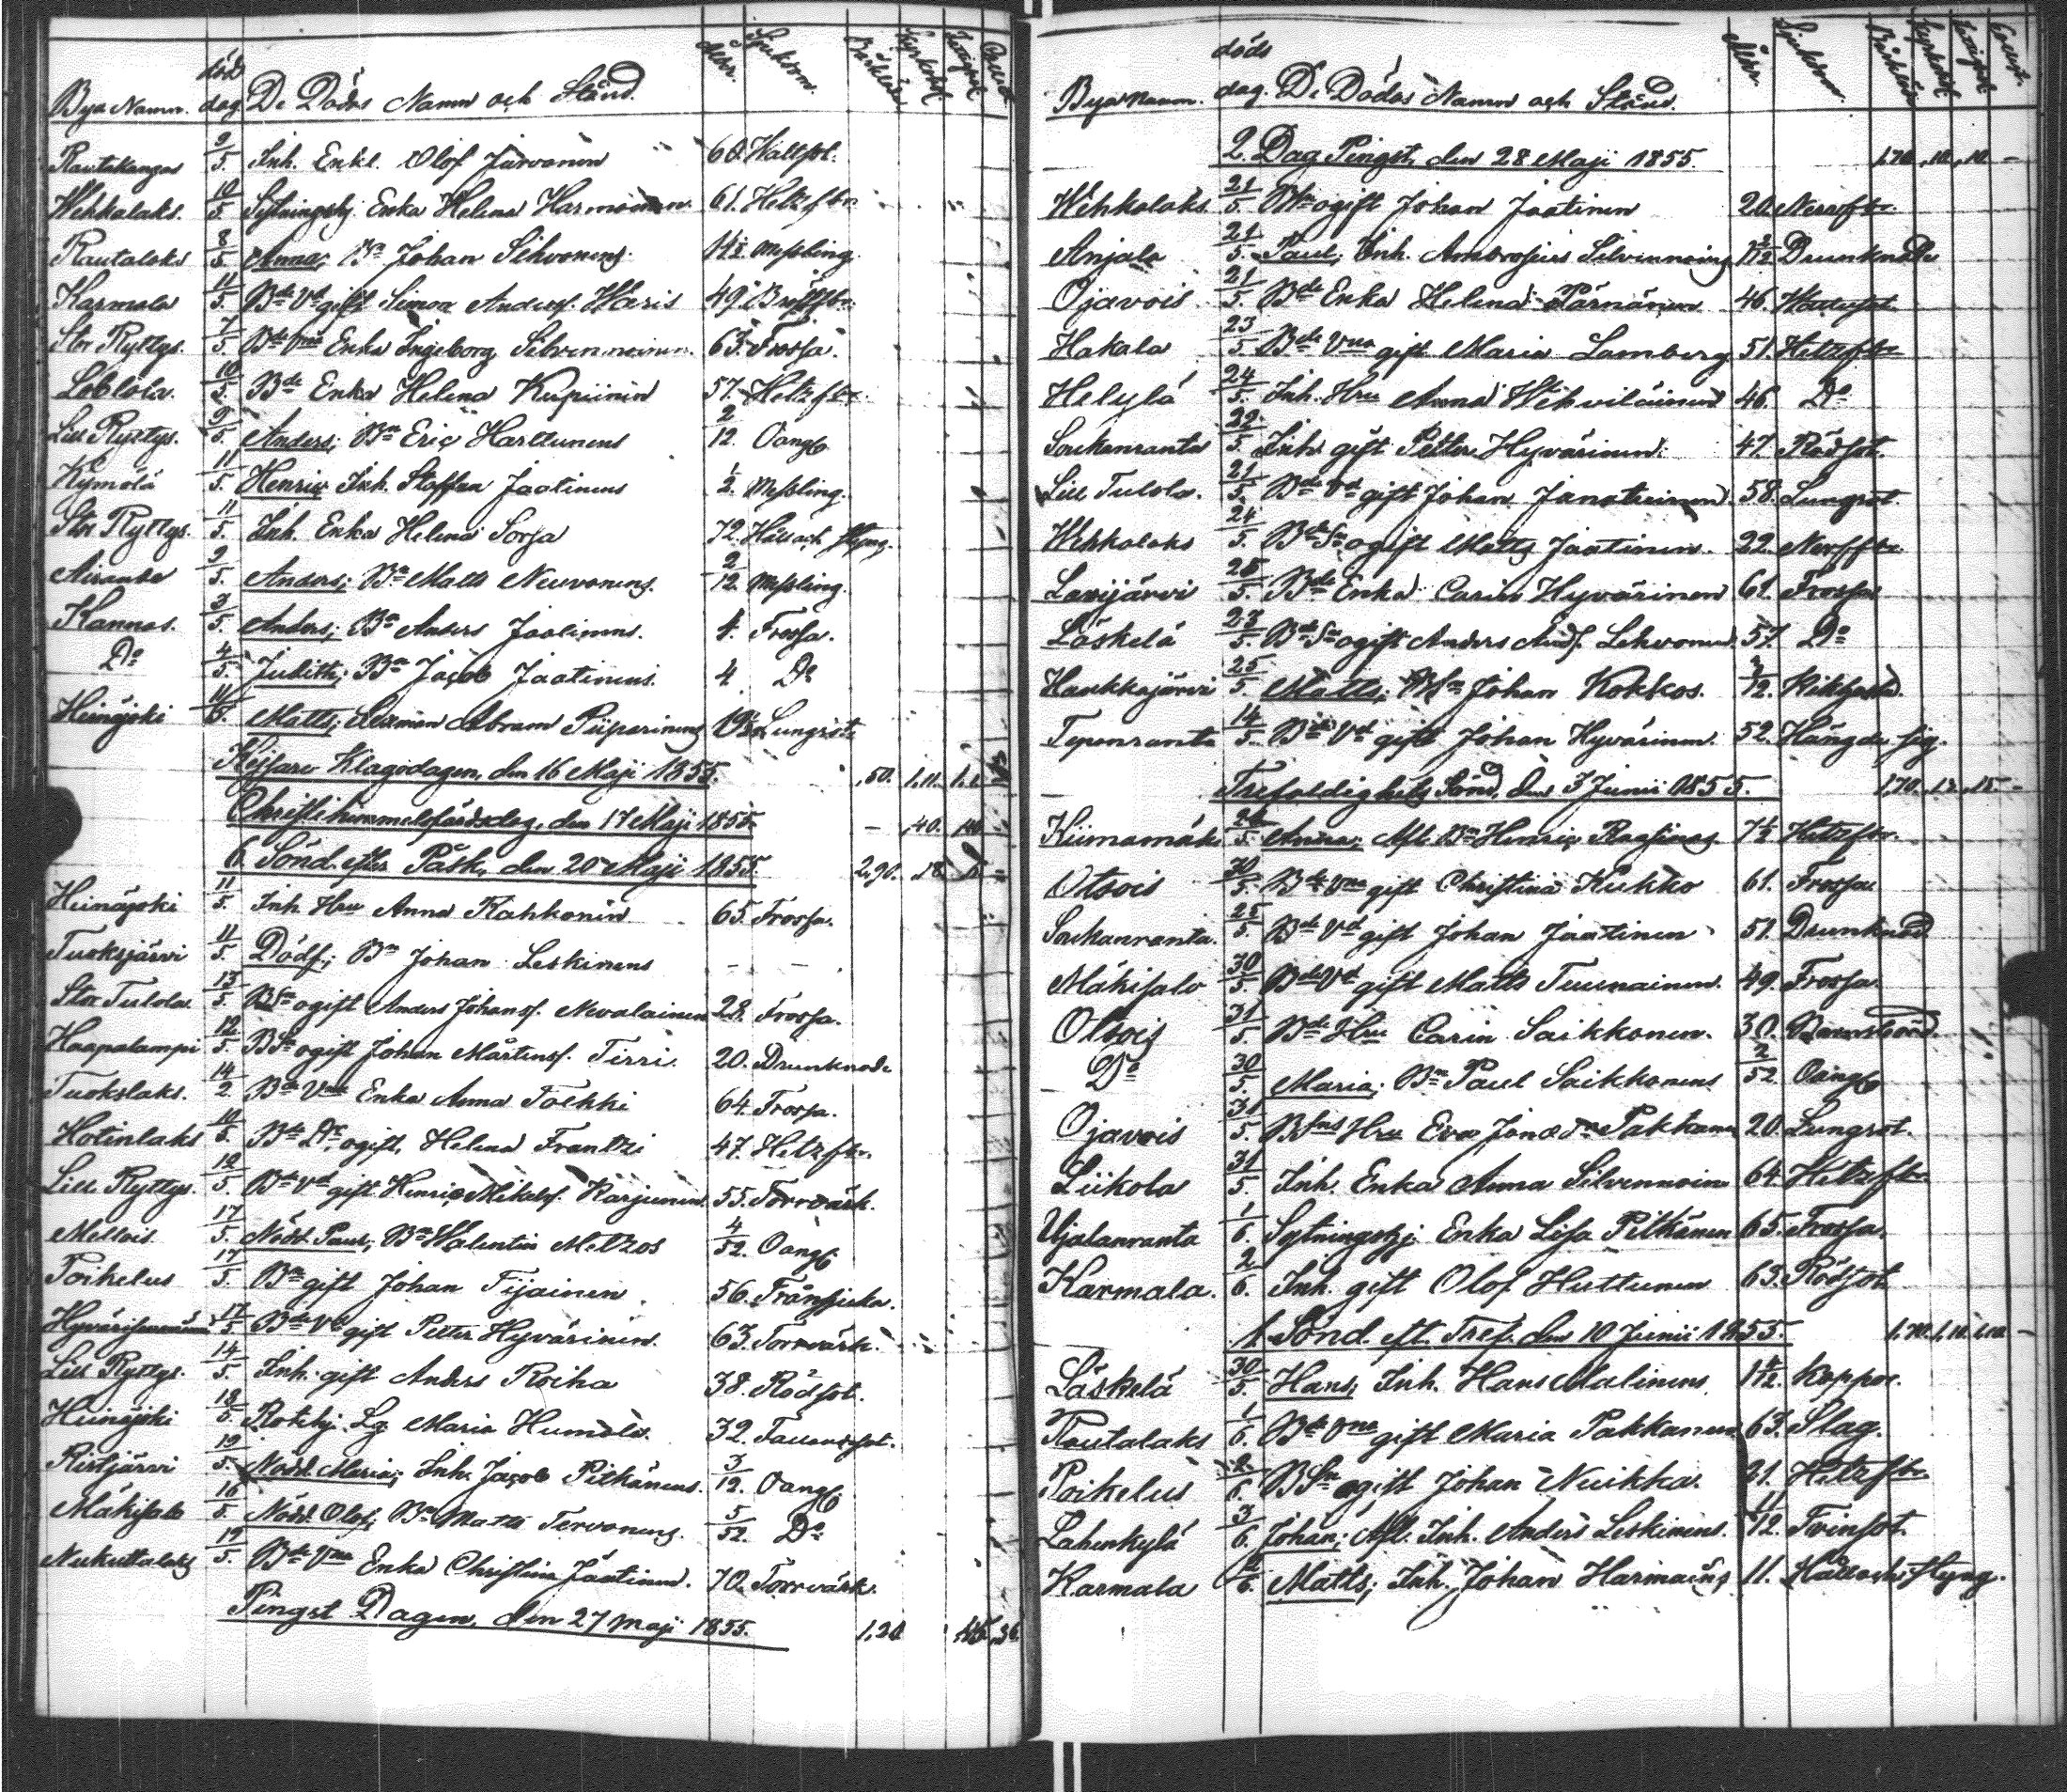 Bya Namn. död dag De Dödas Namn och Stånd. Ålder. Sjukdom.
Rautakangas 9/5. Inh. Enkl. Olof Järvonen 60. Hallsot.
Wehkalaks. 10/5 Sytningshj. Enka Helena Harmoinen 61. Hetzfbr.
Rautalaks 8/5 Anna; Bn Johan Sihvonens. Meßling.
Karmala 11/5. Bde Vd gift Simon Anderss. Häris 49. Bröstfbr.
Stor Ryttys. 7/5. Bde Vna Enka Ingeborg Silvennoinen. 63. Frossa.
Loblola. 10/5. Bde Enka Helena Kupiinin 57. Hetzfbr.
Lill Ryttys. 9/5. Anders; Bn Eric Harttunens 2/12. Oangf
Kymölä 11/5. Henric Inh. Staffan Jaatinens 1/2. Meßling.
Stor Ryttys. 11/5. Inh. Enka Helena Sorsa 72. Håll och styng.
Airanne 9/5. Anders; Bn Matts Neuvonens. 2/12. Meßling.
Kannas. 3/5. Anders; Bn Anders Jaatinens. 4. Frossa.
Do 4/5. Judith; Bn Jacob Jaatinens. 4. Do
Heinäjoki 11/5. Matts; Lezman Abram Piiparinens Lungsot
Kejsare Klagodagen, den 16 Maji 1855. ,50. 1,11.
Christi himmelsfärdsdag, den 17 Maji 1855. – ,40.
6. Sönd. efter Påsk, den 20 Maji 1855. 2,90.
Heinäjoki 11/5. Inh Hru Anna Kahkonin 65. Frossa.
Tuoksjärvi 11/5. Dödf; Bn Johan Leskinens – –
Stor Tulola. 13/5. BSn ogift Anders Johanss. Nevalainen 28. Frossa.
Haapalampi 12/5. BSn ogift Johan Mårtenss. Tirri. 20. Drunknade
Tuokslaks. 14/2 Bde Vna Enka Anna Toikki 64. Frossa.
Hotinlaks 10/5. Bde Dr ogift, Helena Frantzi 47. Hetzfbr.
Lill Ryttys. 12/5. Bde Vd gift Henric Mikelss. Karjunen. 55. Torrvärk.
Mellois. 17/5. Nödd. Paul; Bn Walentin Metzos 4/52. Oangf
Toikelus 17/5. Bn gift Johan Tijainen. 56. Fransjuka.
17/5 Bde Vd gift Petter Hyvärinen. 63. Torrvärk.
Lill Ryttys. 14/5. Inh. gift Anders Roiha 38. Rödsot.
Heinäjoki 18/5 Rotehj. Lg. Maria Humala. 32.
Ristjärvi 19/5. Nödd. Maria; Inh. Jacob Pitkänens. 3/12. Oangf
Mäkisalo 16/5. Nödd. Olof; Bn Matts Tervonens. 5/52. Do
Nukuttalaks 19/5. Bde Vna Enka Christina Jäätinen. 70. Torrvärk.
Pingst Dagen, den 27 Maji 1855. 1,20
Bya Namn. döds dag. De Dödas Namn och Stånd. Ålder. Sjukdom.
2. Dag Pingst, den 28 Maji 1855. 1,70. ,10. ,10. –
Wehkalaks. 21/5. ogift Johan Jaatinen 20. Nervfbr.
Anjala 21/5. Paul; Inh. Ambrosius Silvennoins Drunknade
Ojavois 21/5. Bde Enka Helena Pärnänen 46.
Hakala 23/5. Bde Vna gift Maria Lamberg 51. Hetzfbr.
Helylä 24/5. Inh. Hru Anna Wihviläinen 46. Do
Soukanranta 22/5. Inh. gift Petter Hyvärinen. 47. Rödsot.
Lill Tulola. 21/5. Bde Vd gift Johan Janatuinen. 58. Lungsot.
Wehkalaks 24/5. Bde Sn ogift Matts Jaatinen. 22. Nervfbr.
Lavijärvi 25/5. Bde Enka Carin Hyvärinen 61. Frossa
Läskelä 23/5. Bde Sn ogift Anders Andss. Lehvonen. 57. Do
Haukkajärvi 25/5. Matts; Johan Kokkos. Kikhosta.
Tepenranta 14/5. Bde Vd gift Johan Hyvärinen. 52. Hängde sig.
Trefaldighets Sönd, den 3 Junii 1855. 1,70.
Kiimamäki Anna; Afl. Bn Henric Ragsinas. 7 1/2 Hetzfbr.
Otsois 30/5. Bde Vna gift Christina Kukko 61. Frossa
Soukanranta. 25/5 Bde Vd gift Johan Jaatinen 51. Drunknad.
Mäkisalo 30/5. Bde Vd gift Matts Turunainen. 49. Frossa
Otsois 31/5. Bde Hru Carin Saikkonen. 30. Barnsbörd.
Do 30/5. Maria; Bn Paul Saikkonens 2/52. Oangf
Ojavois 31/5. Bsns Hru Eva Jonæ dr Pakkanen 20. Lungsot.
Liikola 31/5. Inh. Enka Anna Silvennoinen 64. Hetzfbr.
Ujalanranta 1/6. Sytningshj. Enka Lisa Pitkänen 65. Frossa.
Karmala. 2/6. Inh. gift Olof Huttunen 63. Rödsot.
1. Sönd. eft. Tref. den 10 Junii 1855.
Läskelä 30/5. Hans; Inh. Hans Malinens Koppor.
Rautalaks 1/6. Bde Vna gift Maria Pakkanen 63. Slag.
Poikelus 2/6. BSn ogift Johan Nuikka. 21. Hetzfbr.
Lahenkylä 3/6. Johan; Afl. Inh. Anders Leskinens. 11/12. Tvinsot.
Karmala Matts; Inh. Johan Harmains 11. Håll och styng.